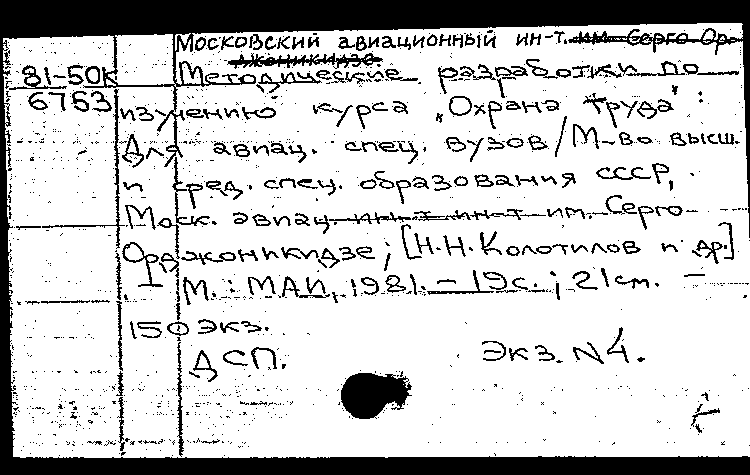 Московский авиационный ин-т. им. Серго Ор-
джоникидзе
81-50к Методические разработки по
6763 изучению курса „Охрана труда“:
Для авиац. спец. вузов/М-во высш.
и сред. спец. образования СССР,
Моск. авиац. ин-т ин-т им. Серго
Орджоникидзе; [Н.Н. Колотилов и др.]
. – М.: МАИ, 1981. – 19с.; 21см. –
150 экз.
ДСП. Экз. N4.